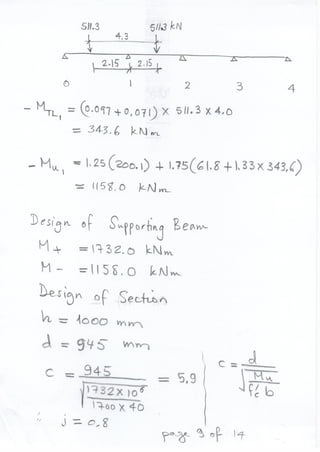 511.3 511.3 kN
4.3
2.15 2.15
0 1 2 3 4
- M_TL₁ = (0.097 + 0,071) × 511.3 × 4.0
= 343.6 kNm
- Mu₁ = 1.25(200.1) + 1.75(61.8 + 1.33 × 343,6)
= 1158.0 kNm
Design of Supporting Beam
M+ = 1732.0 kNm
M- = 1158.0 kNm
Design of Section
h = 1000 mm
d = 945 mm
c = 945 / √(1732 × 10⁶ / 1700 × 40) = 5.9 c = d / √(Mu / f'c b)
∴ j = 0.8
page 9 of 14